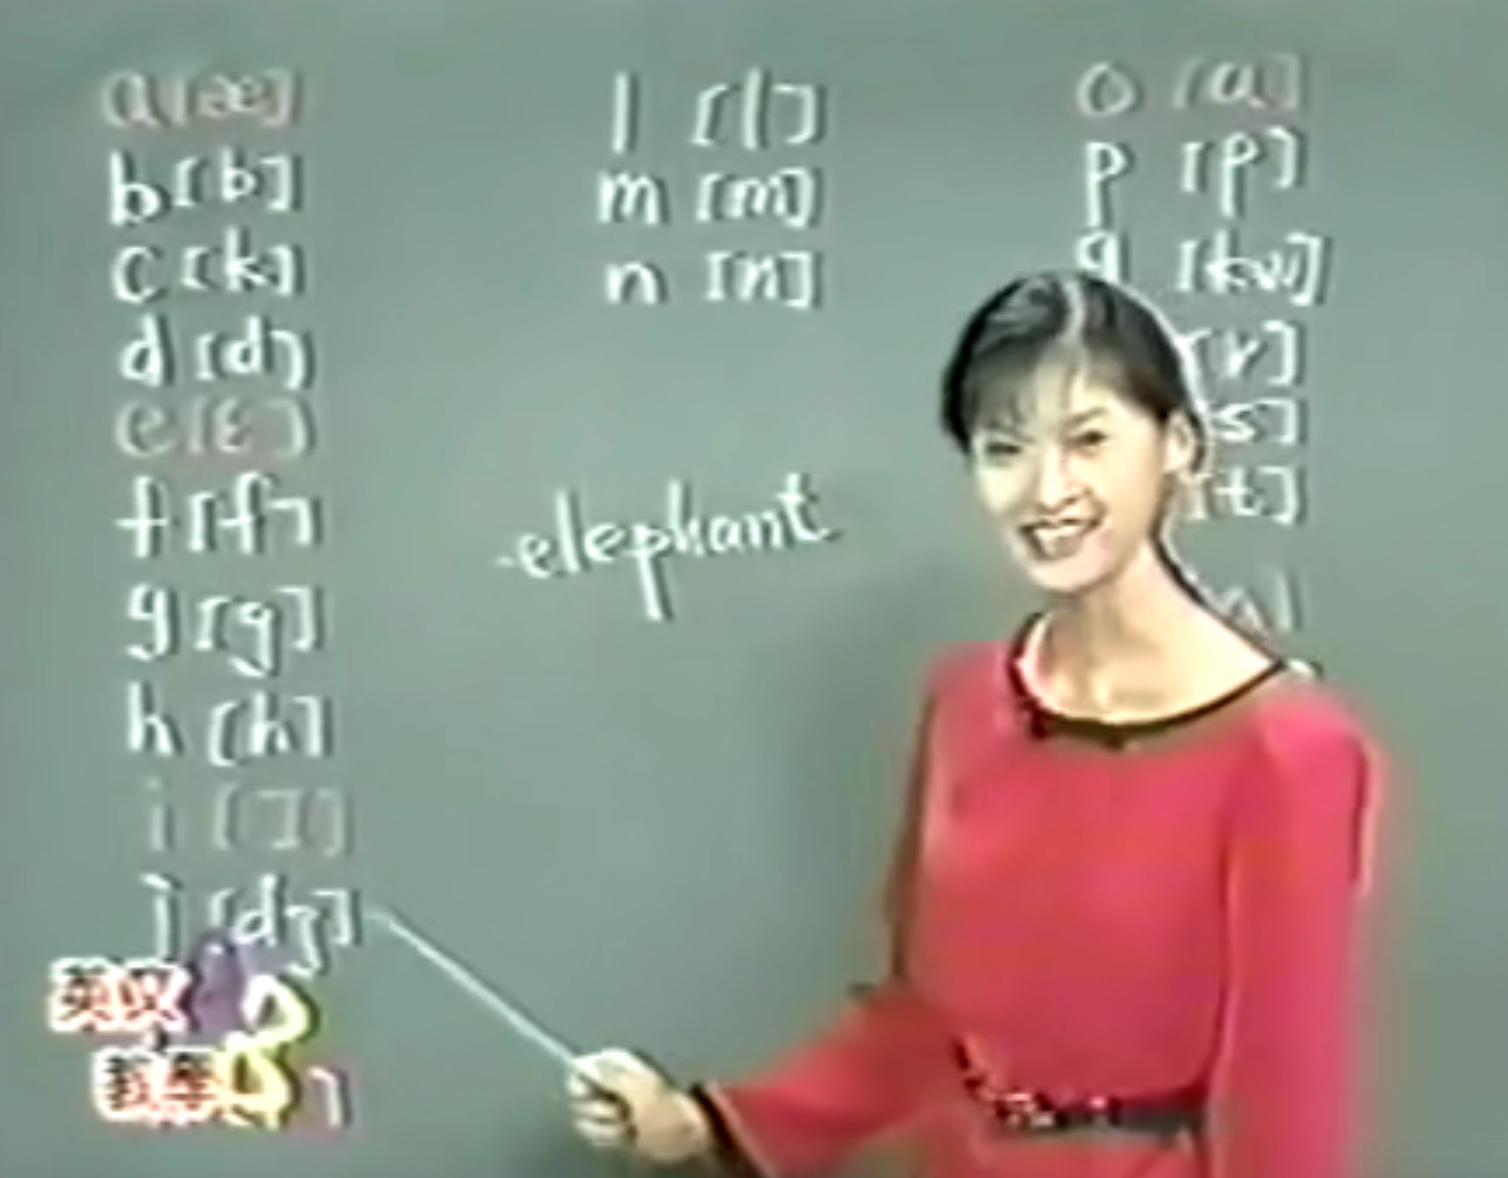 a [æ]
b [b]
c [k]
d [d]
e [ɛ]
f [f]
g [g]
h [h]
i [ɪ]
j [dʒ]
l [l]
m [m]
n [n]
elephant
o [a]
p [p]
q [kw]
[r]
[s]
[t]
教學